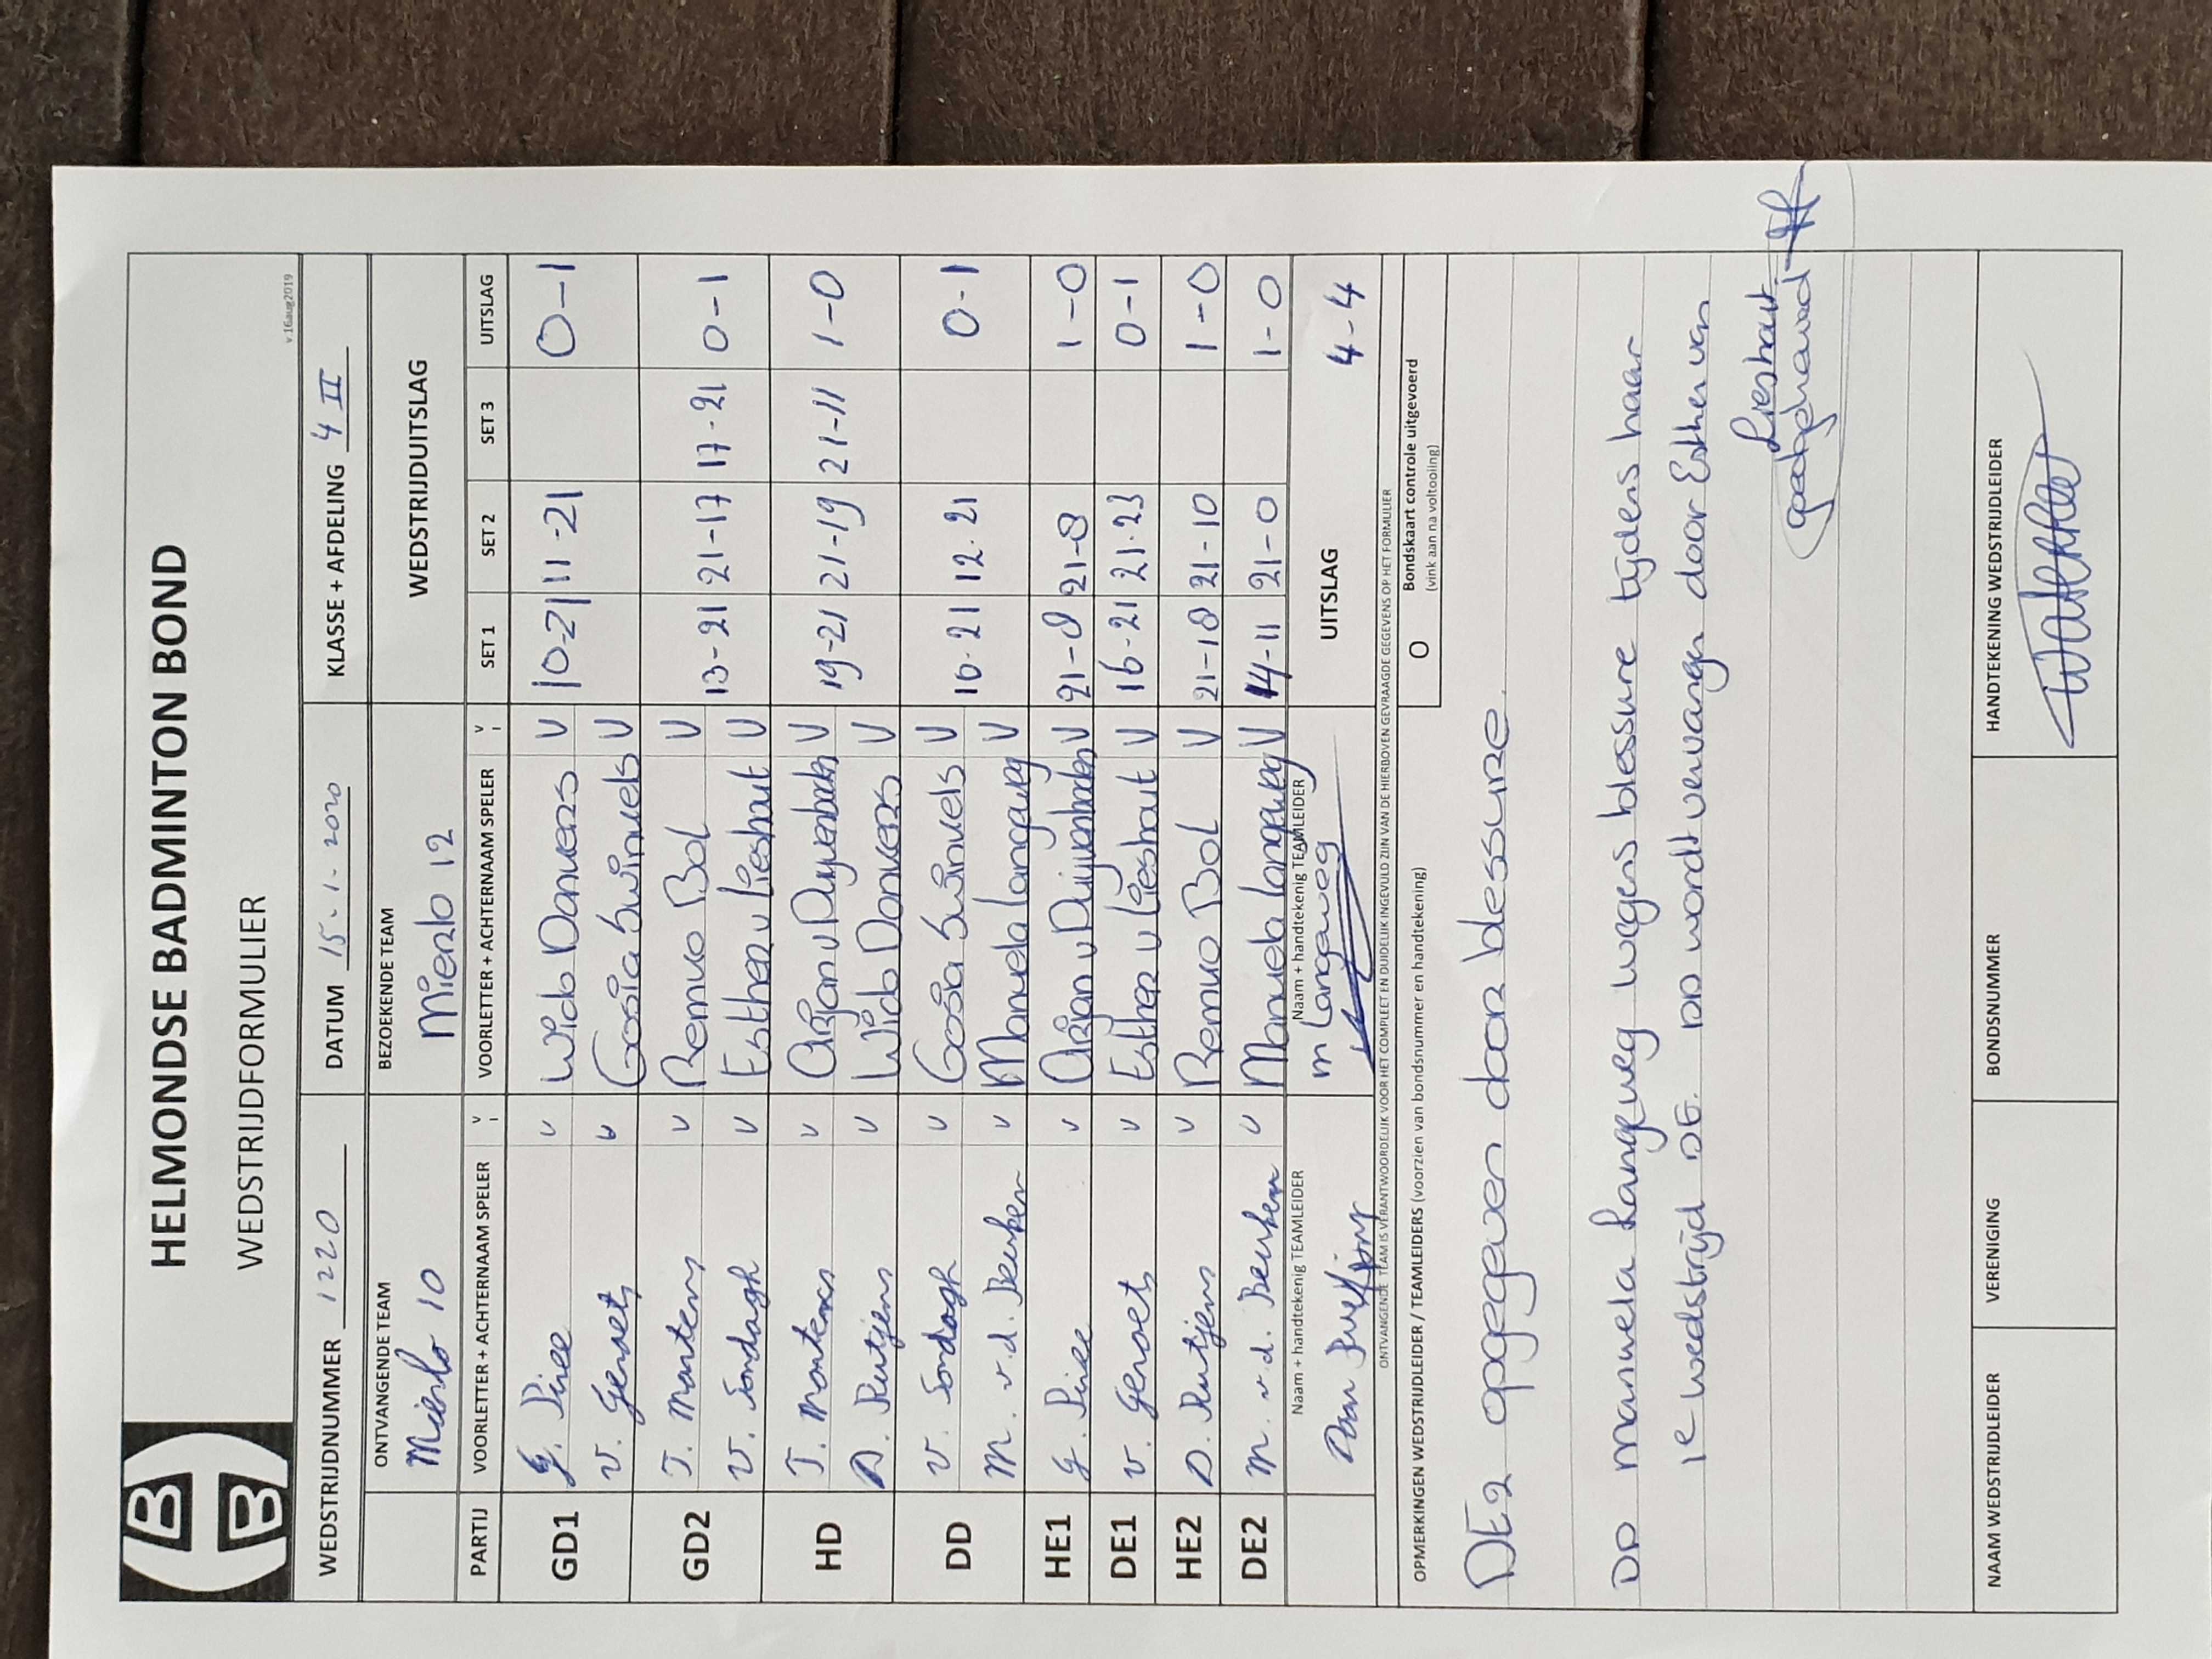 HELMONDSE BADMINTON BOND
WEDSTRIJDFORMULIER
v.16aug2019
WEDSTRIJDNUMMER 1220 DATUM 15-1-2020 KLASSE + AFDELING 4 II
ONTVANGENDE TEAM BEZOEKENDE TEAM WEDSTRIJDUITSLAG
Mierlo 10 Mierlo 12
PARTIJ VOORLETTER + ACHTERNAAM SPELER V VOORLETTER + ACHTERNAAM SPELER V SET 1 SET 2 SET 3 UITSLAG
GD1 V Wido Danvers V 10-21 11-21 0-1
V. Genoets V Gosia Swinuels V
GD2 T. Martens V Remco Bol V 13-21 21-17 17-21 0-1
V. Sondagh V Esther v Lieshout V
HD T. Martens V Arjan v Duijnhoven V 19-21 21-19 21-11 1-0
D. Rutjens V Wido Danvers V
DD V. Sondagh V Gosia Swinuels V 10-21 12-21 0-1
M. v.d. Beurken V Manuela Langeweg V
HE1 V Arjan v Duijnhoven V 21-8 21-8 1-0
DE1 V. Genoets V Esther v Lieshout V 16-21 21-23 0-1
HE2 D. Rutjens V Remco Bol V 21-18 21-10 1-0
DE2 M. v.d. Beurken V Manuela Langeweg V 14-11 21-0 1-0
Naam + handtekenig TEAMLEIDER Naam + handtekenig TEAMLEIDER UITSLAG 4-4
m Langeweg
ONTVANGENDE TEAM IS VERANTWOORDELIJK VOOR HET COMPLEET EN DUIDELIJK INGEVULD ZIJN VAN DE HIERBOVEN GEVRAAGDE GEGEVENS OP HET FORMULIER
OPMERKINGEN WEDSTRIJDLEIDER / TEAMLEIDERS (voorzien van bondsnummer en handtekening) O Bondskaart controle uitgevoerd
(vink aan na voltooiing)
DE2 opgegeven door blessure.
DD manuela Langeweg wegens blessure tijdens haar
1e wedstrijd DE. DD wordt vervangen door Esther van
Lieshout
NAAM WEDSTRIJDLEIDER VERENIGING BONDSNUMMER HANDTEKENING WEDSTRIJDLEIDER